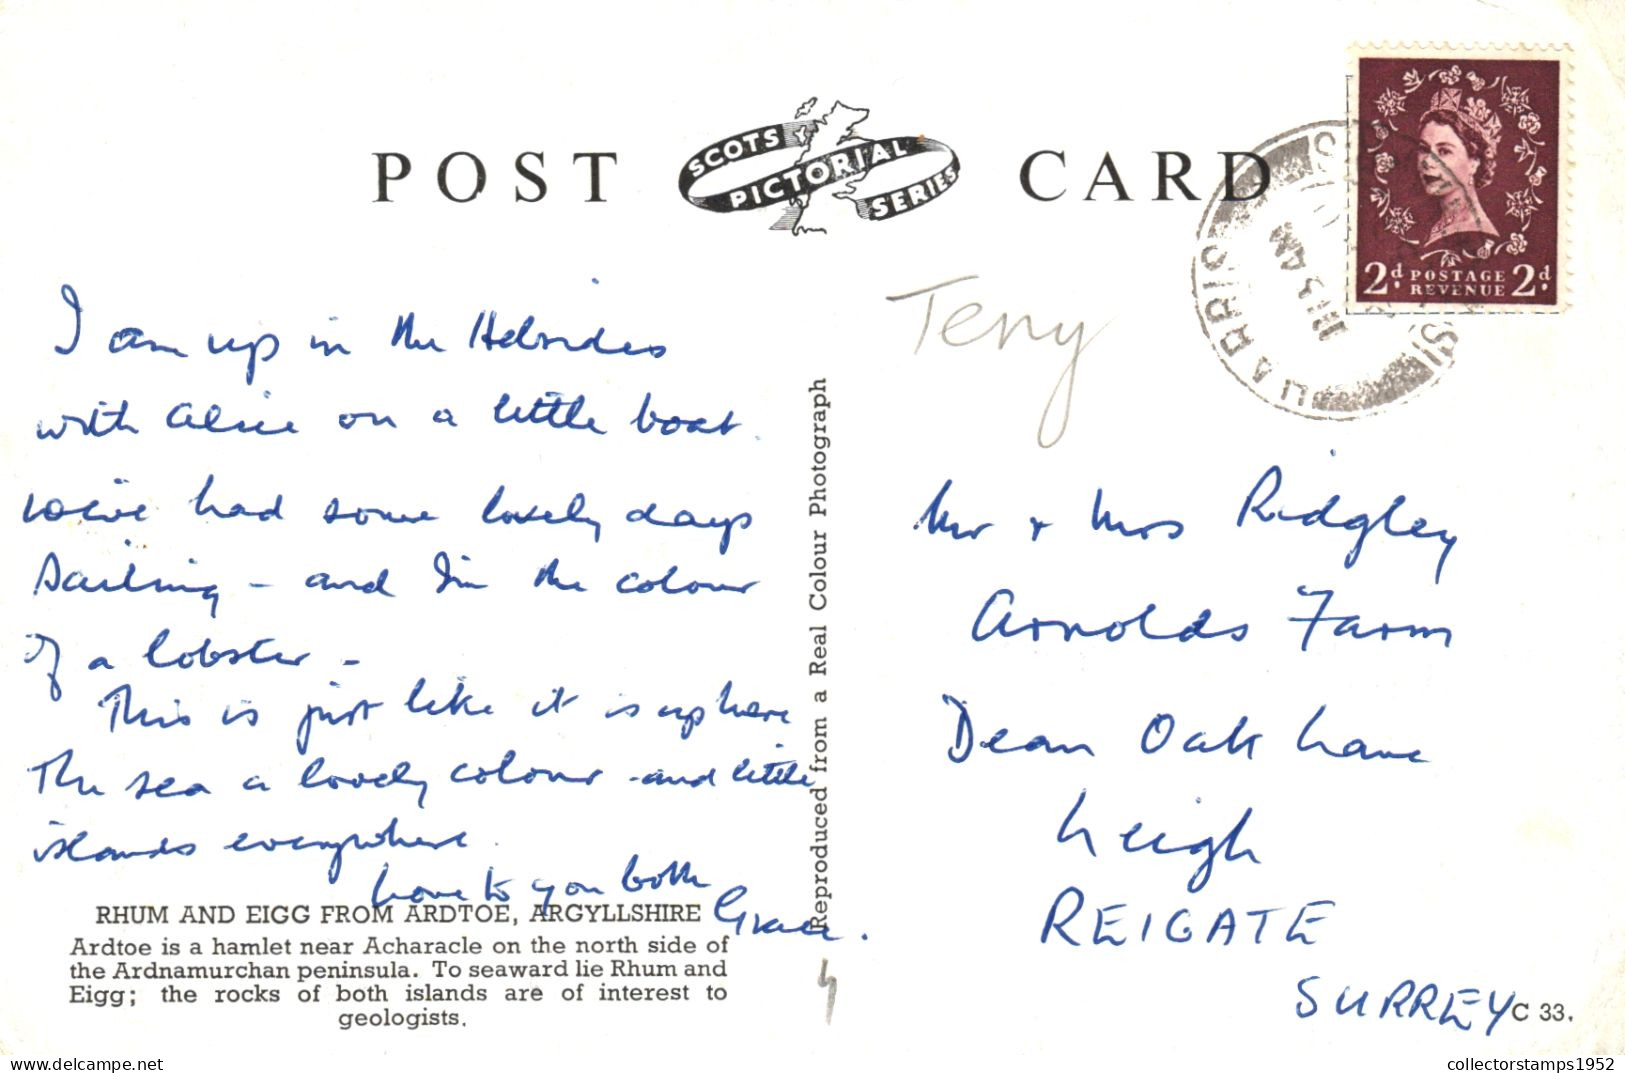 POST CARD
SCOTS
PICTORIAL
SERIES
2d POSTAGE 2d
REVENUE
I am up in the Hebrides
with Alice on a little boat.
We've had some lovely days
sailing – and I'm the colour
of a lobster –
This is just like it is up here
The sea a lovely colour – and little
islands everywhere.
Love to you both
Grace.
RHUM AND EIGG FROM ARDTOE, ARGYLLSHIRE
Ardtoe is a hamlet near Acharacle on the north side of
the Ardnamurchan peninsula. To seaward lie Rhum and
Eigg; the rocks of both islands are of interest to
geologists.
Reproduced from a Real Colour Photograph
Terry
Mr + Mrs Ridgley
Arnolds Farm
Dean Oak Lane
Leigh
REIGATE
SURREY
C 33.
collectorstamps1952